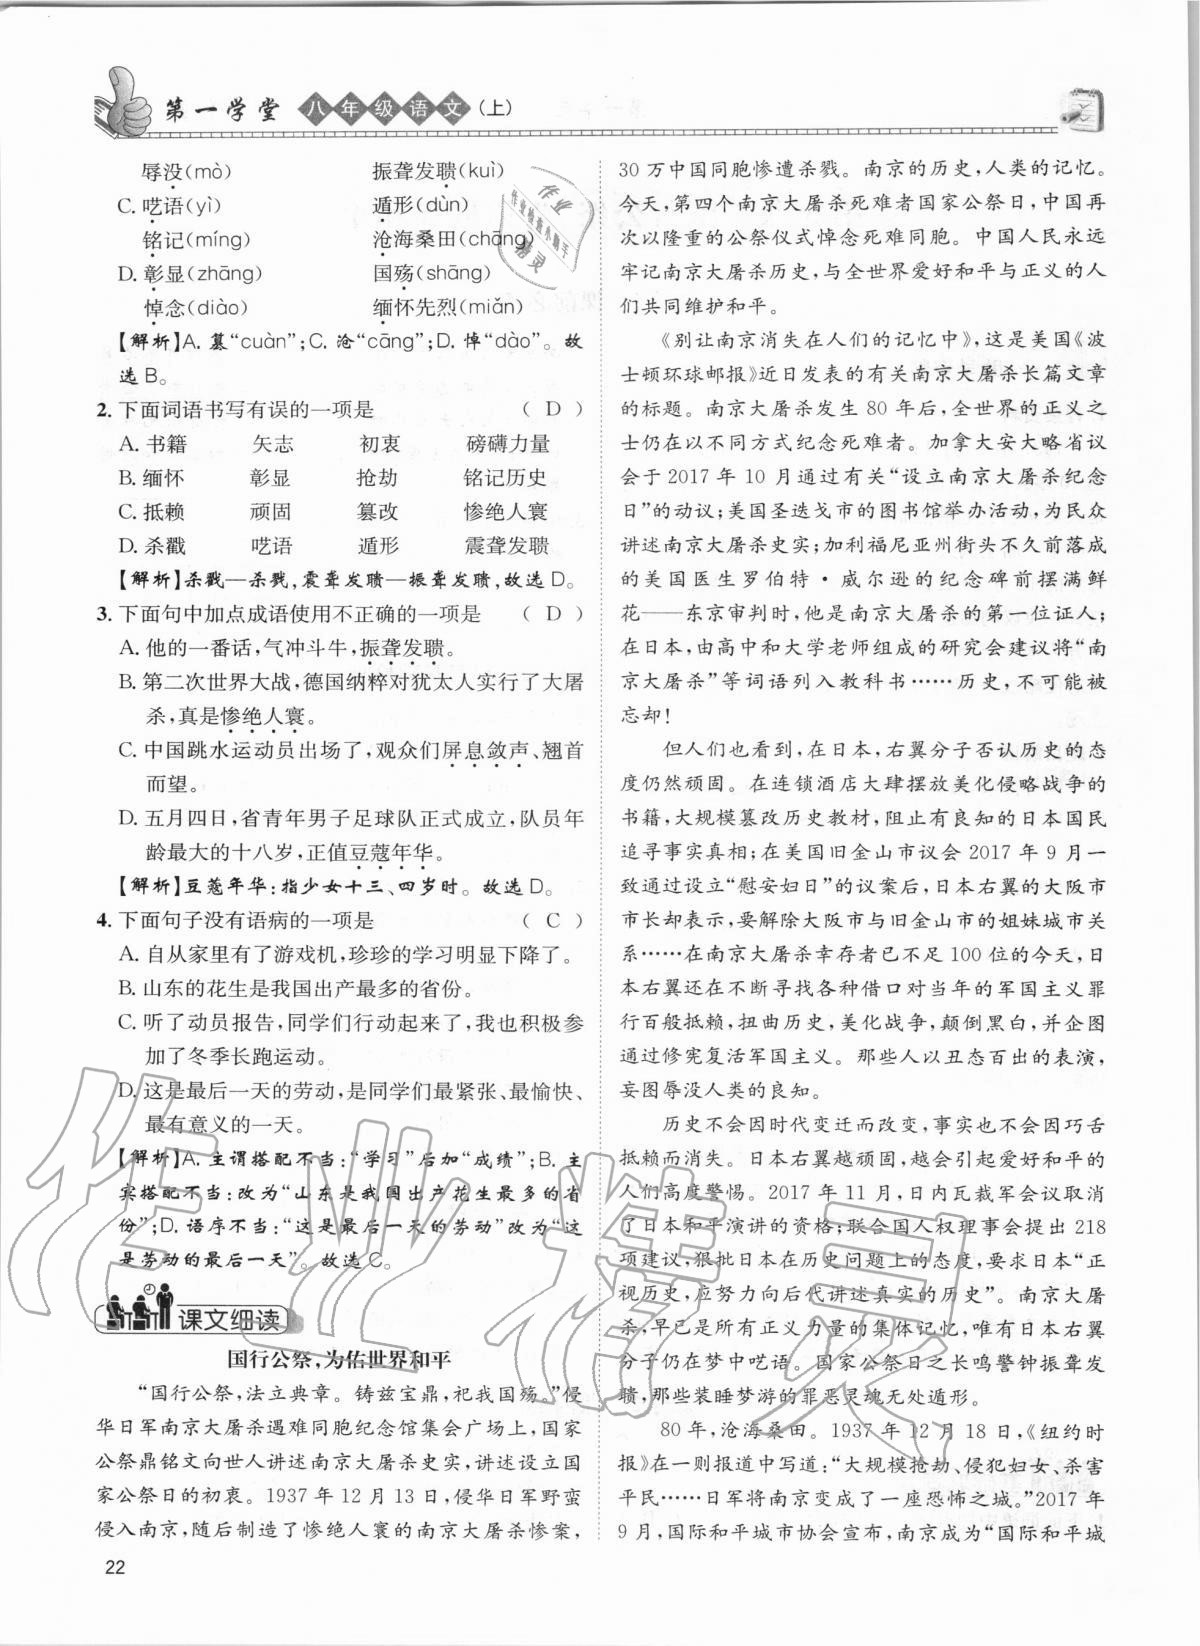 第一学堂 八年级语文(上)
辱没(mò) 振聋发聩(kuì)
C. 呓语(yì) 遁形(dùn)
铭记(míng) 沧海桑田(chāng)
D. 彰显(zhāng) 国殇(shāng)
悼念(diào) 缅怀先烈(miǎn)
【解析】A. 篡“cuàn”;C. 沧“cāng”;D. 悼“dào”。故
选 B。
2. 下面词语书写有误的一项是 ( D )
A. 书籍 矢志 初衷 磅礴力量
B. 缅怀 彰显 抢劫 铭记历史
C. 抵赖 顽固 篡改 惨绝人寰
D. 杀戳 呓语 遁形 震聋发聩
【解析】杀戳—杀戮,震聋发聩—振聋发聩,故选 D。
3. 下面句中加点成语使用不正确的一项是 ( D )
A. 他的一番话,气冲斗牛,振聋发聩。
B. 第二次世界大战,德国纳粹对犹太人实行了大屠
杀,真是惨绝人寰。
C. 中国跳水运动员出场了,观众们屏息敛声、翘首
而望。
D. 五月四日,省青年男子足球队正式成立,队员年
龄最大的十八岁,正值豆蔻年华。
【解析】豆蔻年华:指少女十三、四岁时。故选 D。
4. 下面句子没有语病的一项是 ( C )
A. 自从家里有了游戏机,珍珍的学习明显下降了。
B. 山东的花生是我国出产最多的省份。
C. 听了动员报告,同学们行动起来了,我也积极参
加了冬季长跑运动。
D. 这是最后一天的劳动,是同学们最紧张、最愉快、
最有意义的一天。
【解析】A. 主谓搭配不当:“学习”后加“成绩”;B. 主
宾搭配不当:改为“山东是我国出产花生最多的省
份”;D. 语序不当:“这是最后一天的劳动”改为“这
是劳动的最后一天”。故选 C。
课文细读
国行公祭,为佑世界和平
“国行公祭,法立典章。铸兹宝鼎,祀我国殇。”侵
华日军南京大屠杀遇难同胞纪念馆集会广场上,国家
公祭鼎铭文向世人讲述南京大屠杀史实,讲述设立国
家公祭日的初衷。1937 年 12 月 13 日,侵华日军野蛮
侵入南京,随后制造了惨绝人寰的南京大屠杀惨案,
22
30 万中国同胞惨遭杀戮。南京的历史,人类的记忆。
今天,第四个南京大屠杀死难者国家公祭日,中国再
次以隆重的公祭仪式悼念死难同胞。中国人民永远
牢记南京大屠杀历史,与全世界爱好和平与正义的人
们共同维护和平。
《别让南京消失在人们的记忆中》,这是美国《波
士顿环球邮报》近日发表的有关南京大屠杀长篇文章
的标题。南京大屠杀发生 80 年后,全世界的正义之
士仍在以不同方式纪念死难者。加拿大安大略省议
会于 2017 年 10 月通过有关“设立南京大屠杀纪念
日”的动议;美国圣迭戈市的图书馆举办活动,为民众
讲述南京大屠杀史实;加利福尼亚州街头不久前落成
的美国医生罗伯特·威尔逊的纪念碑前摆满鲜
花——东京审判时,他是南京大屠杀的第一位证人;
在日本,由高中和大学老师组成的研究会建议将“南
京大屠杀”等词语列入教科书……历史,不可能被
忘却!
但人们也看到,在日本,右翼分子否认历史的态
度仍然顽固。在连锁酒店大肆摆放美化侵略战争的
书籍,大规模篡改历史教材,阻止有良知的日本国民
追寻事实真相;在美国旧金山市议会 2017 年 9 月一
致通过设立“慰安妇日”的议案后,日本右翼的大阪市
市长却表示,要解除大阪市与旧金山市的姐妹城市关
系……在南京大屠杀幸存者已不足 100 位的今天,日
本右翼还在不断寻找各种借口对当年的军国主义罪
行百般抵赖,扭曲历史,美化战争,颠倒黑白,并企图
通过修宪复活军国主义。那些人以丑态百出的表演,
妄图辱没人类的良知。
历史不会因时代变迁而改变,事实也不会因巧舌
抵赖而消失。日本右翼越顽固,越会引起爱好和平的
人们高度警惕。2017 年 11 月,日内瓦裁军会议取消
了日本和平演讲的资格;联合国人权理事会提出 218
项建议,狠批日本在历史问题上的态度,要求日本“正
视历史,应努力向后代讲述真实的历史”。南京大屠
杀,早已是所有正义力量的集体记忆,唯有日本右翼
分子仍在梦中呓语。国家公祭日之长鸣警钟振聋发
聩,那些装睡梦游的罪恶灵魂无处遁形。
80 年,沧海桑田。1937 年 12 月 18 日,《纽约时
报》在一则报道中写道:“大规模抢劫、侵犯妇女、杀害
平民……日军将南京变成了一座恐怖之城。”2017 年
9 月,国际和平城市协会宣布,南京成为“国际和平城
作业
作业检查小助手
精灵
作业精灵